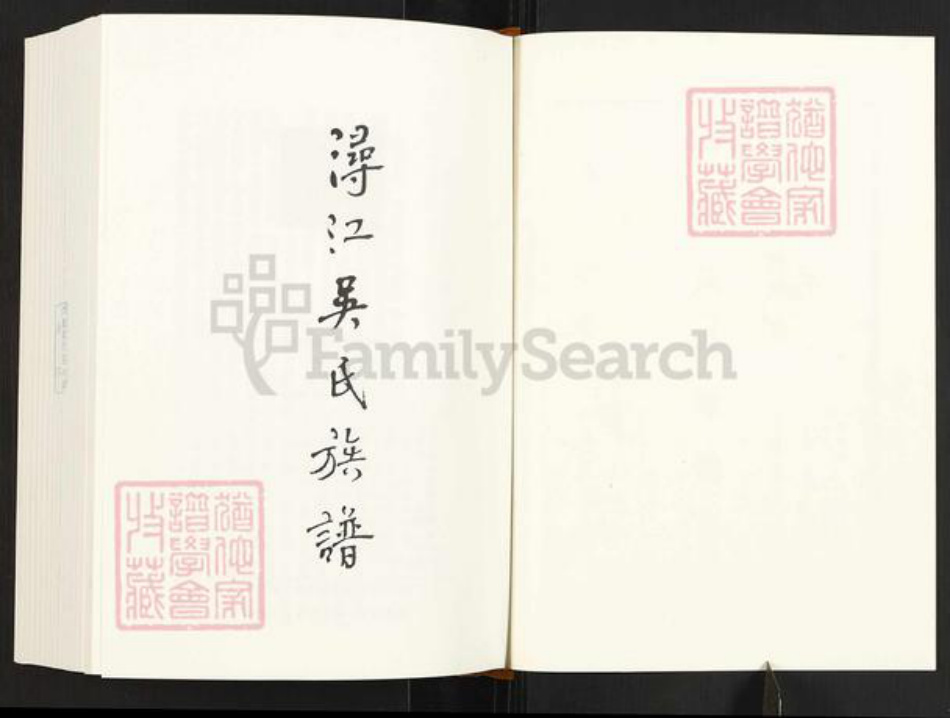 潯江吳氏族譜
猶他家
譜學會
收藏
猶他家
譜學會
收藏
FamilySearch